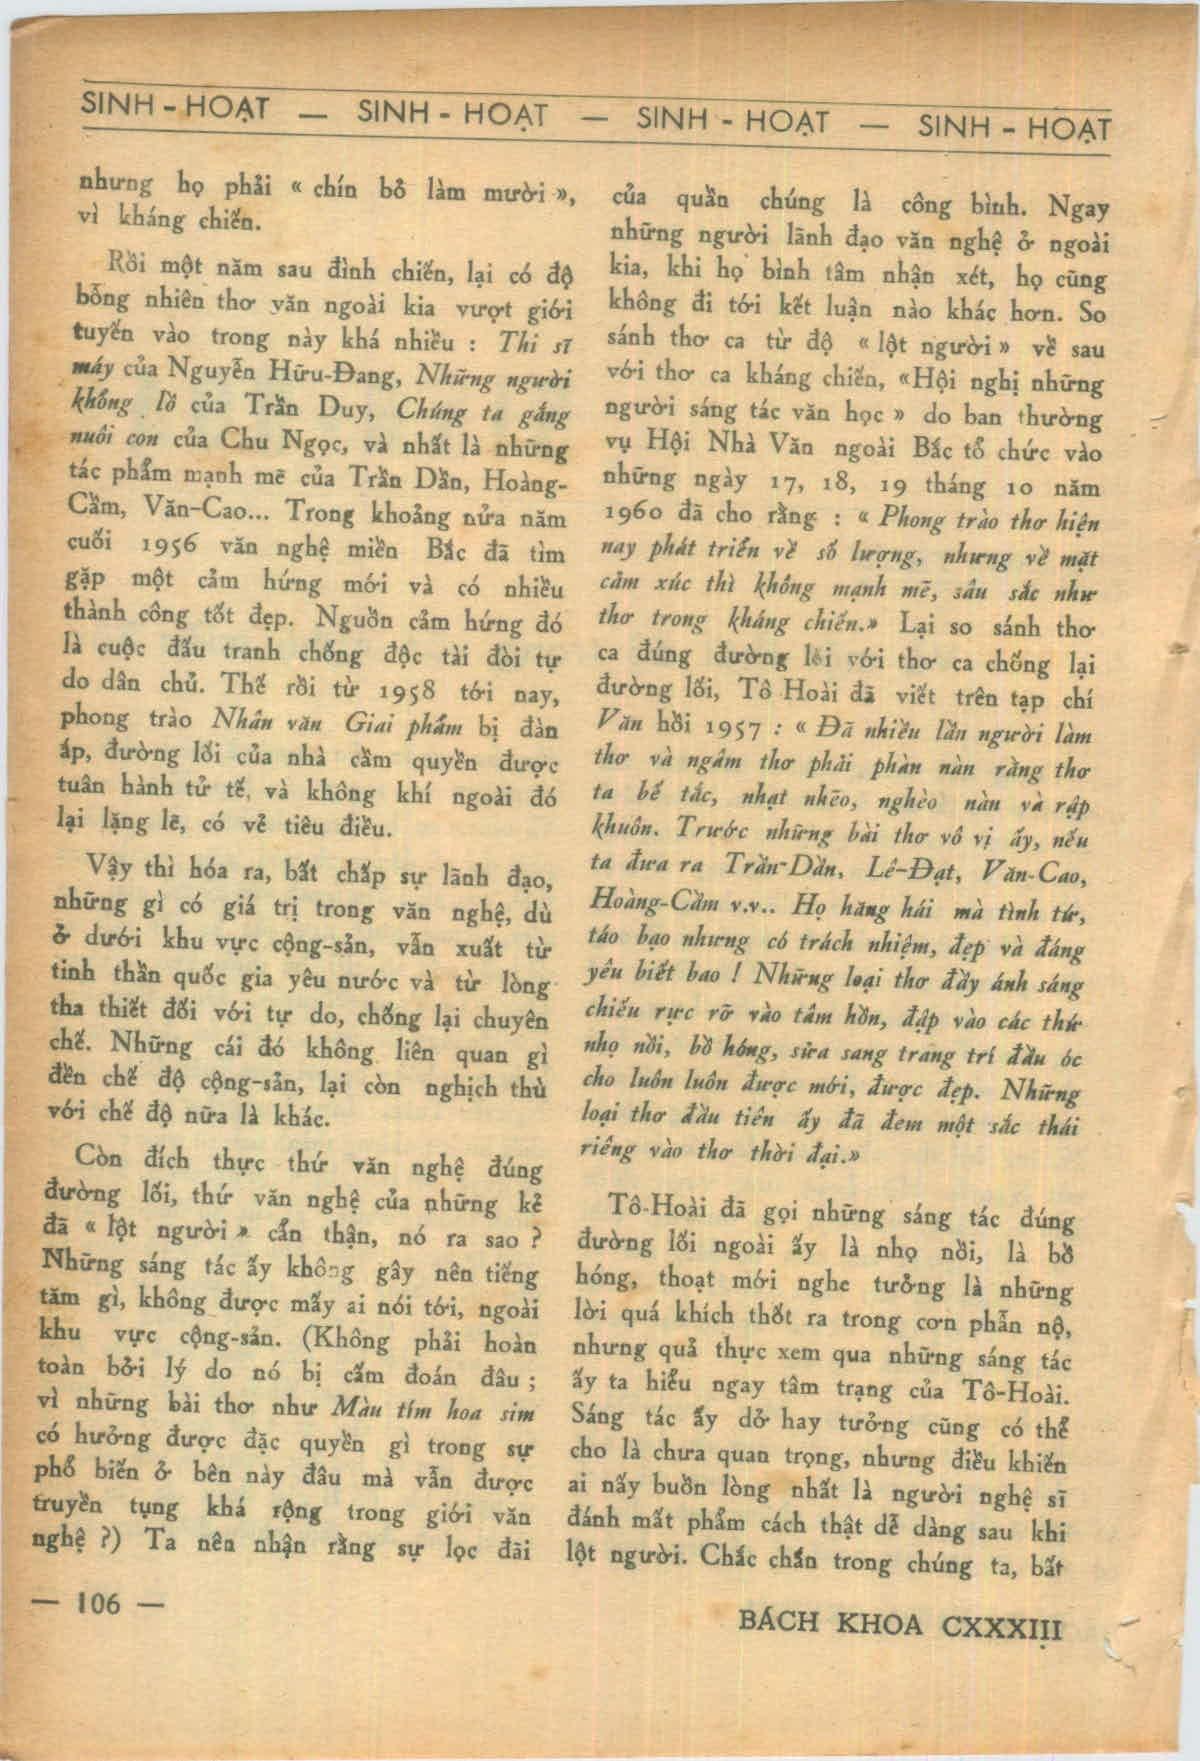 SINH - HOẠT — SINH - HOẠT — SINH - HOẠT — SINH - HOẠT
nhưng họ phải « chín bỏ làm mười »,
vì kháng chiến.
Rồi một năm sau đình chiến, lại có độ
bỗng nhiên thơ văn ngoài kia vượt giới
tuyến vào trong này khá nhiều : Thi sĩ
máy của Nguyễn Hữu-Đang, Những người
khổng lồ của Trần Duy, Chúng ta gắng
nuôi con của Chu Ngọc, và nhất là những
tác phẩm mạnh mẽ của Trần Dần, Hoàng-
Cầm, Văn-Cao... Trong khoảng nửa năm
cuối 1956 văn nghệ miền Bắc đã tìm
gặp một cảm hứng mới và có nhiều
thành công tốt đẹp. Nguồn cảm hứng đó
là cuộc đấu tranh chống độc tài đòi tự
do dân chủ. Thế rồi từ 1958 tới nay,
phong trào Nhân văn Giai phẩm bị đàn
áp, đường lối của nhà cầm quyền được
tuân hành tử tế, và không khí ngoài đó
lại lặng lẽ, có vẻ tiêu điều.
Vậy thì hóa ra, bất chấp sự lãnh đạo,
những gì có giá trị trong văn nghệ, dù
ở dưới khu vực cộng-sản, vẫn xuất từ
tinh thần quốc gia yêu nước và từ lòng
tha thiết đối với tự do, chống lại chuyên
chế. Những cái đó không liên quan gì
đến chế độ cộng-sản, lại còn nghịch thù
với chế độ nữa là khác.
Còn đích thực thứ văn nghệ đúng
đường lối, thứ văn nghệ của những kẻ
đã « lột người » cẩn thận, nó ra sao ?
Những sáng tác ấy không gây nên tiếng
tăm gì, không được mấy ai nói tới, ngoài
khu vực cộng-sản. (Không phải hoàn
toàn bởi lý do nó bị cấm đoán đâu ;
vì những bài thơ như Màu tím hoa sim
có hưởng được đặc quyền gì trong sự
phổ biến ở bên này đâu mà vẫn được
truyền tụng khá rộng trong giới văn
nghệ ?) Ta nên nhận rằng sự lọc đãi
của quần chúng là công bình. Ngay
những người lãnh đạo văn nghệ ở ngoài
kia, khi họ bình tâm nhận xét, họ cũng
không đi tới kết luận nào khác hơn. So
sánh thơ ca từ độ « lột người » về sau
với thơ ca kháng chiến, «Hội nghị những
người sáng tác văn học » do ban thường
vụ Hội Nhà Văn ngoài Bắc tổ chức vào
những ngày 17, 18, 19 tháng 10 năm
1960 đã cho rằng : « Phong trào thơ hiện
nay phát triển về số lượng, nhưng về mặt
cảm xúc thì không mạnh mẽ, sâu sắc như
thơ trong kháng chiến.» Lại so sánh thơ
ca đúng đường lối với thơ ca chống lại
đường lối, Tô Hoài đã viết trên tạp chí
Văn hồi 1957 : « Đã nhiều lần người làm
thơ và ngâm thơ phải phàn nàn rằng thơ
ta bế tắc, nhạt nhẽo, nghèo nàn và rập
khuôn. Trước những bài thơ vô vị ấy, nếu
ta đưa ra Trần-Dần, Lê-Đạt, Văn-Cao,
Hoàng-Cầm v.v.. Họ hăng hái mà tình tứ,
táo bạo nhưng có trách nhiệm, đẹp và đáng
yêu biết bao ! Những loại thơ đầy ánh sáng
chiếu rực rỡ vào tâm hồn, đập vào các thứ
nhọ nồi, bồ hóng, sửa sang trang trí đầu óc
cho luôn luôn được mới, được đẹp. Những
loại thơ đầu tiên ấy đã đem một sắc thái
riêng vào thơ thời đại.»
Tô-Hoài đã gọi những sáng tác đúng
đường lối ngoài ấy là nhọ nồi, là bồ
hóng, thoạt mới nghe tưởng là những
lời quá khích thốt ra trong cơn phẫn nộ,
nhưng quả thực xem qua những sáng tác
ấy ta hiểu ngay tâm trạng của Tô-Hoài.
Sáng tác ấy dở hay tưởng cũng có thể
cho là chưa quan trọng, nhưng điều khiến
ai nấy buồn lòng nhất là người nghệ sĩ
đánh mất phẩm cách thật dễ dàng sau khi
lột người. Chắc chắn trong chúng ta, bất
— 106 —
BÁCH KHOA CXXXIII